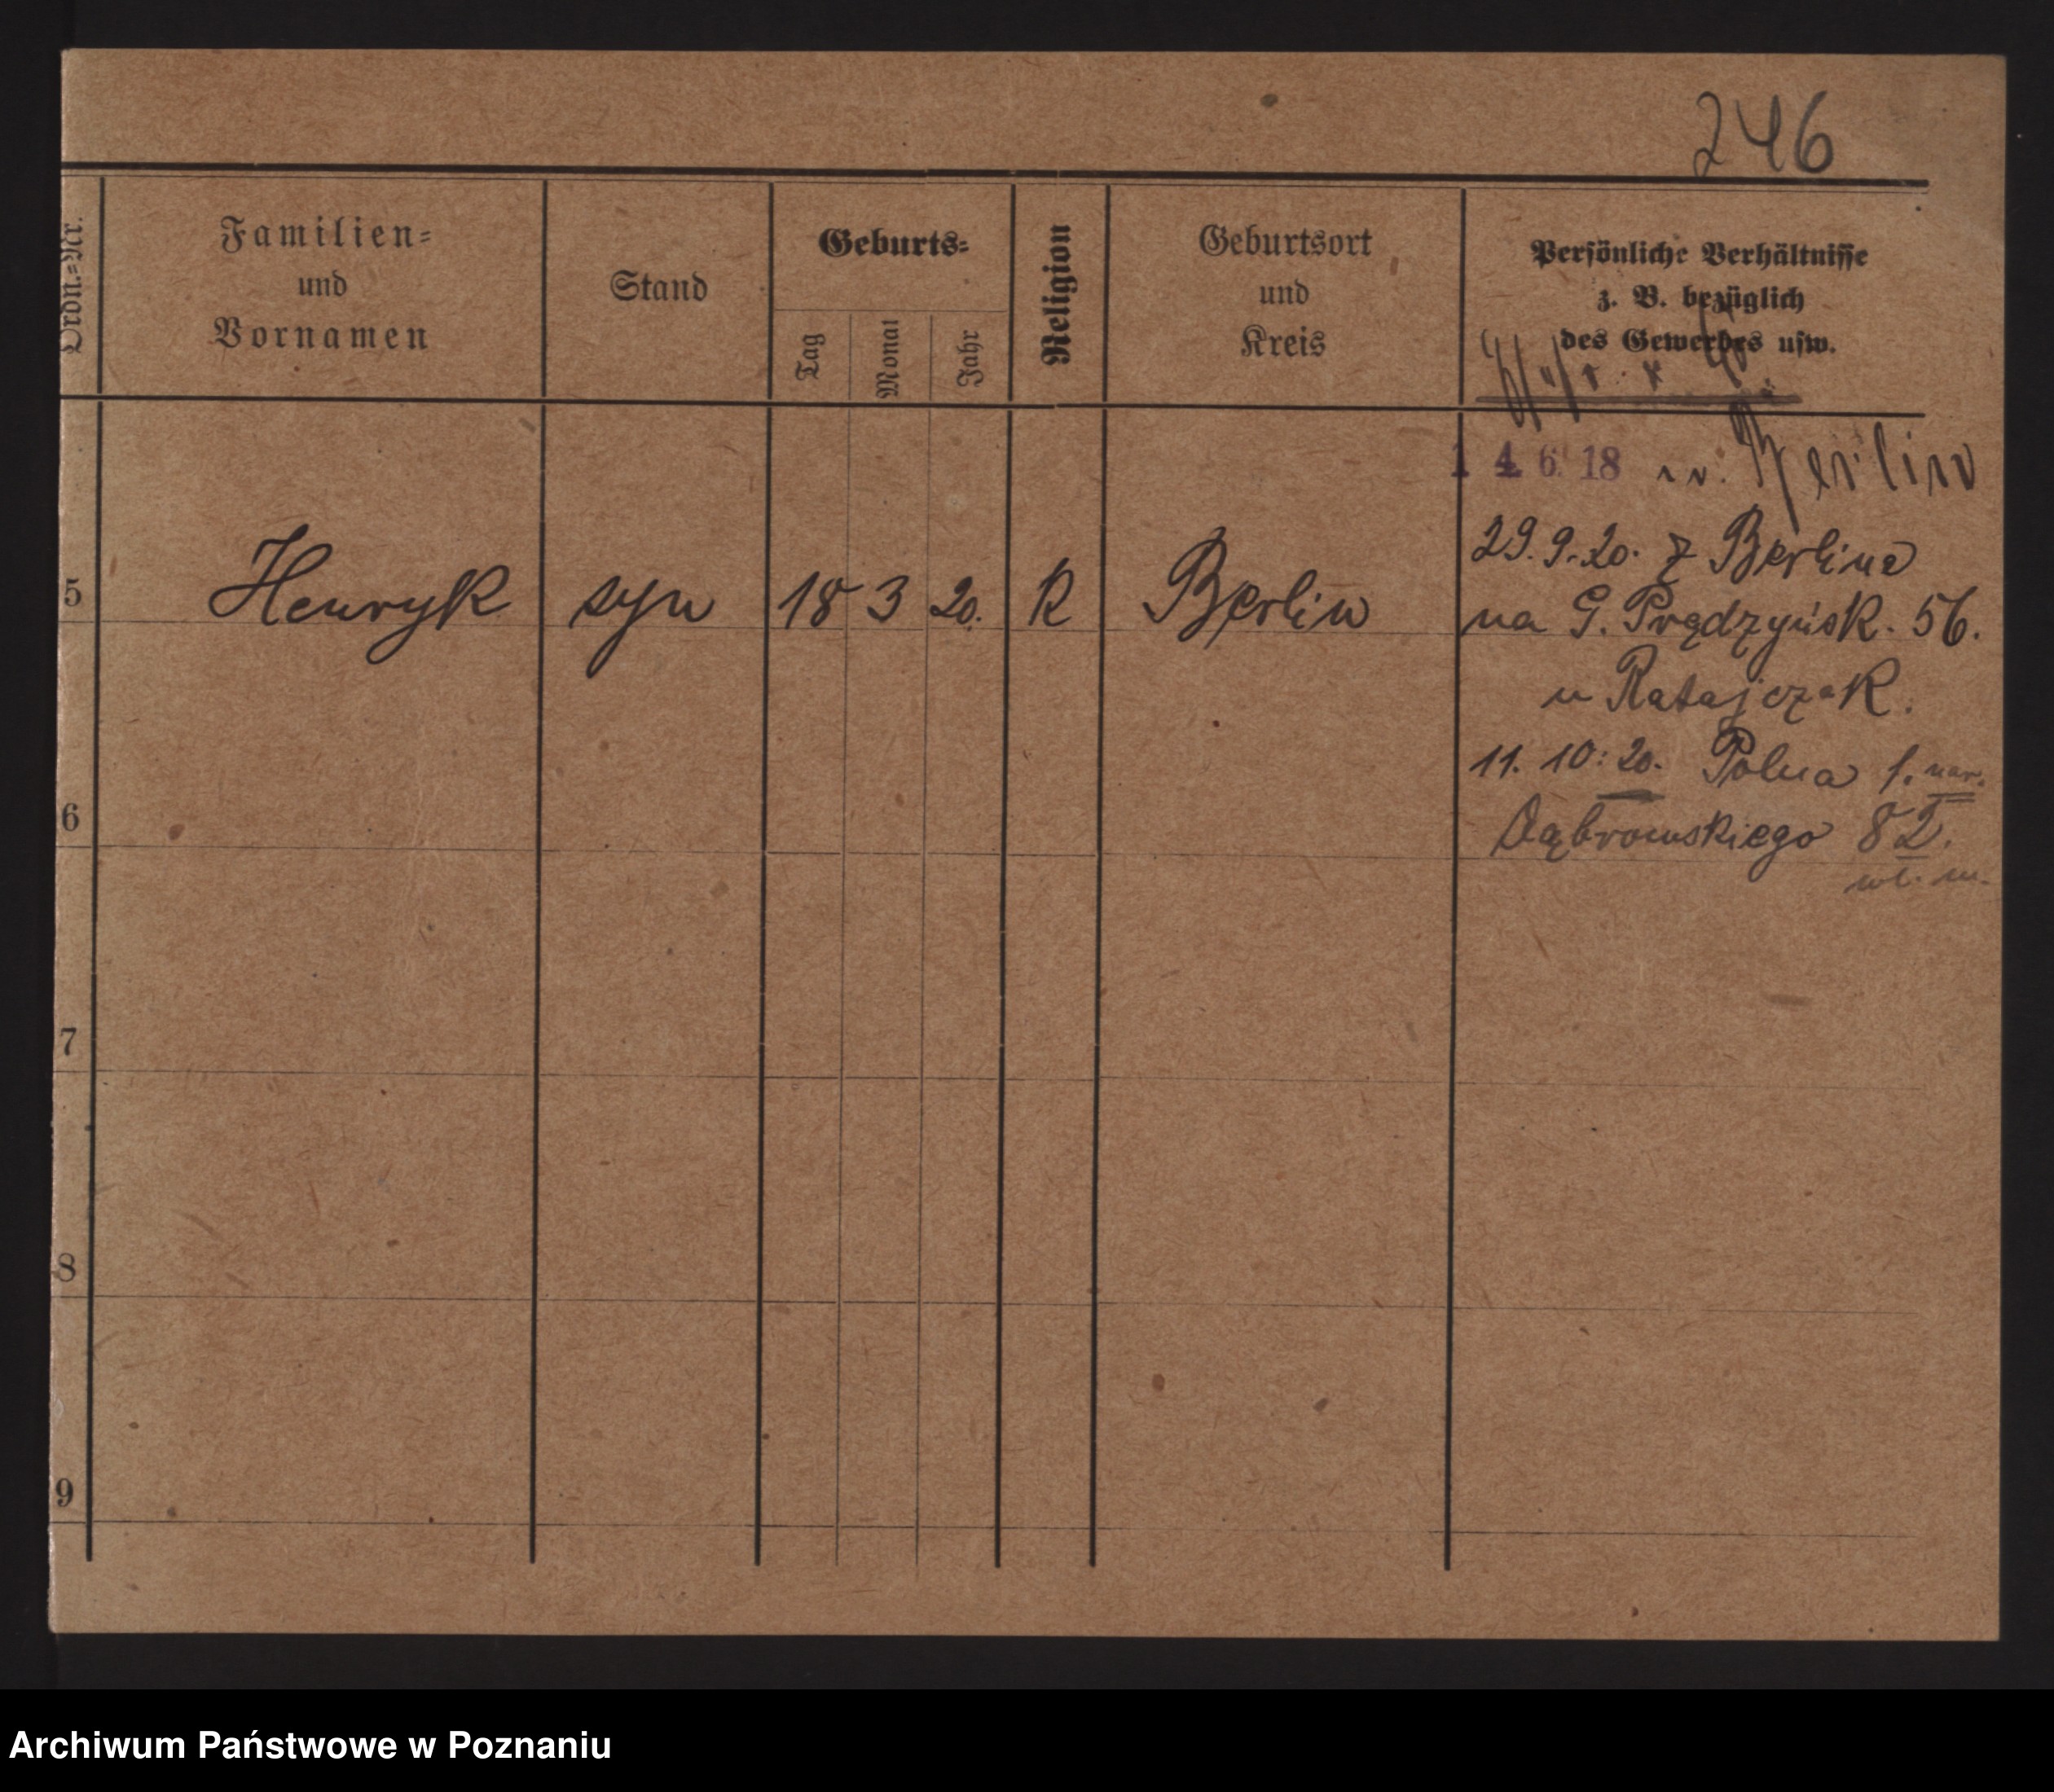 246
Ordn.=Nr.
Familien=
und
Vornamen
Stand
Geburts=
Tag
Monat
Jahr
Religion
Geburtsort
und
Kreis
Persönliche Verhältnisse
z. B. bezüglich
des Gewerbes usw.
1 4 6 18 n. Berlin
29. 9. 20. z Berlina
5 Henryk syn 18 3 20. K Berlin
na G. Prądzyńsk. 56.
u Ratajczak.
11. 10. 20. Polna 1. nar.
6
Dąbrowskiego 82.
wł. m.
7
8
9
Archiwum Państwowe w Poznaniu